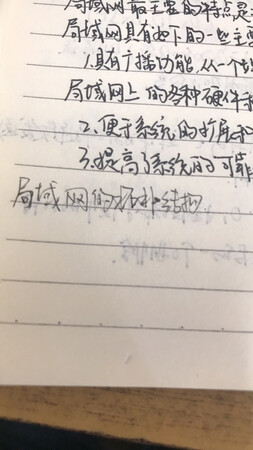 局域网最主要的特点是
局域网具有如下的一些主要
1.具有广播功能,从一个站
局域网上的各种硬件和
2.便于系统的扩展和
3.提高了系统的可靠
局域网的拓扑结构